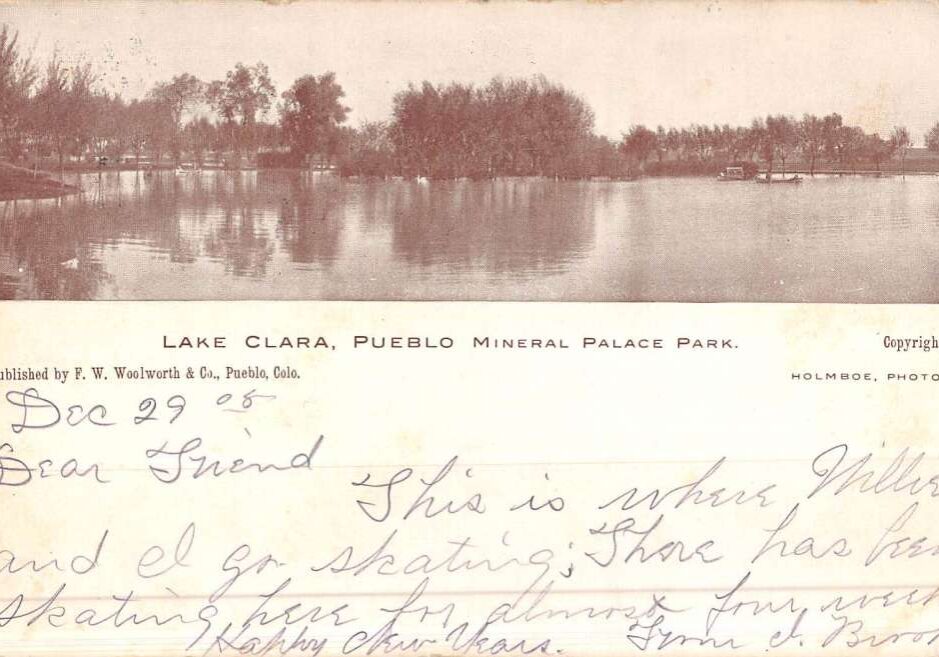 LAKE CLARA, PUEBLO MINERAL PALACE PARK.
Copyrigh
ublished by F. W. Woolworth & Co., Pueblo, Colo.
HOLMBOE, PHOTO
Dec 29 05
Dear Friend
This is where Willie
and I go skating; There has been
skating here for almost four week
Happy New Years. From I. Broo